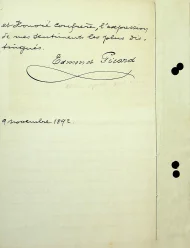 et Honoré Confrère, l'expression
de mes sentiments les plus dis-
tingués.
Edmond Picard
9 novembre 1892.